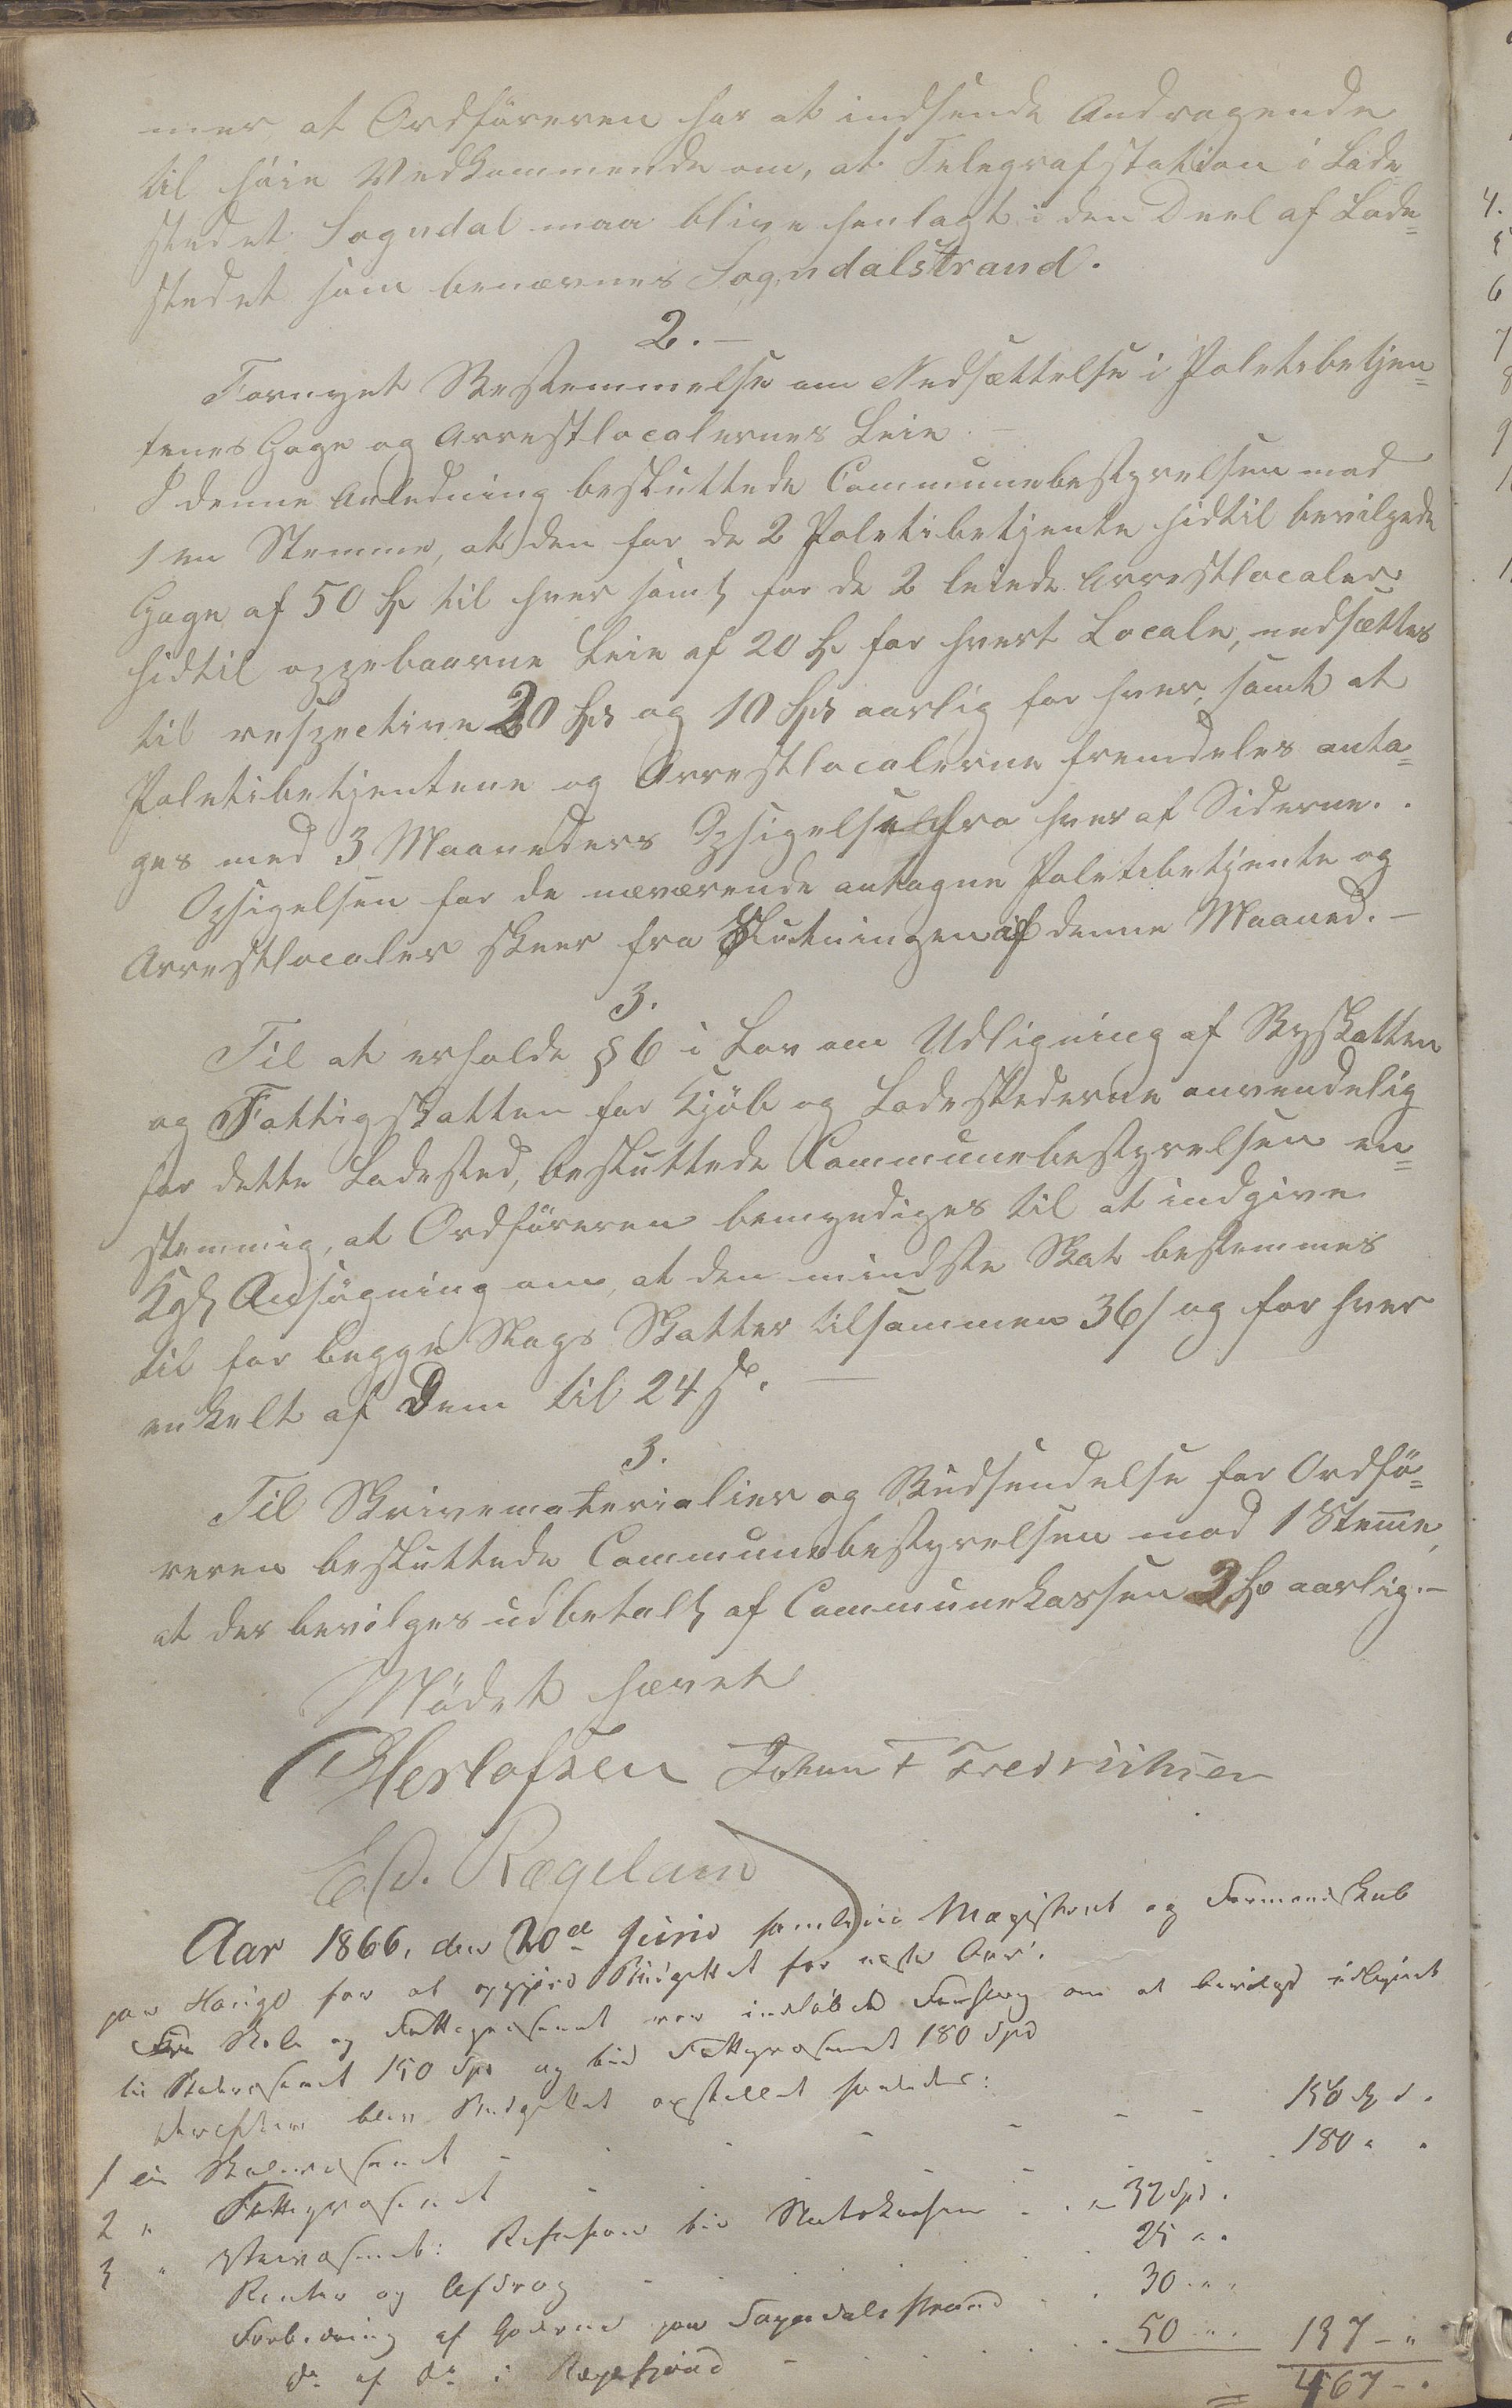 mer, at Ordføreren har at indsende Andragende
til høie Vedkommende om, at Telegrafstation i Lade
stedet Sogndal maa blive henlagt i den Deel af Lade=
stedet som benævnes Sogndalstrand.
2. –
Fornyet Bestemmelse om Nedsættelse i Politibetjen=
tenes Gage og Arrestlocalernes Leie. –
I denne Anledning besluttede Communebestyrelsen mod
1 en Stemme, at den for de 2 Politibetjente hidtil bevilgede
Gage af 50 Spd til hver samt for de 2 leiede Arrestlocaler
hidtil oppebaarne Leie af 20 Spd for hvert Locale, nedsættes
til respective 20 Spd og 10 Spd aarlig for hver, samt at
Politibetjentene og Arrestlocalerne fremdeles anta=
ges med 3 Maaneders Opsigelse fra hver af Siderne.
Opsigelsen for de nuværende antagne Politibetjente og
Arrestlocaler skeer fra Slutningen af denne Maaned. –
3.
Til at erholde § 6 i Lov om Udligning af Byskatten
og Fattigskatten for Kjøb og Ladestederne anvendelig
for dette Ladested, besluttede Communebestyrelsen en=
stemmig, at Ordføreren bemyndiges til at indgive
Kgl Ansøgning om, at den mindste Skat bestemmes
til for begge Slags Skatter tilsammen 36 s og for hver
enkelt af Dem til 24 s. –
3.
Til Skrivematerialier og Budsendelse for Ordfø=
reren besluttede Communebestyrelsen mod 1 Stemme,
at der bevilges udbetalt af Communekassen 3 Spd aarlig. –
Mødet hævet
Herlofsen Johan F Fredrichsen
Ed. Rægeland
Aar 1866, den 20de Junio samledes Magistrat og Formandskab
paa Hauge for at opgjøre Budgettet for næste Aar.
Fra Skole og Fattigvæsenet var indløbet Forslag om at bevilges udlignet
til Skolevæsenet 150 Spd og til Fattigvæsenet 180 Spd
Derefter blev Budgettet opstillet saaledes:
1 til Skolevæsenet - - - - - 150 Spd.
2 " Fattigvæsenet - - - - - 180 " "
3 " Veivæsenet: Refusion til Statskassen - - 32 Spd.
Renter og Afdrag - - - 25 " "
Forbedring af Gaderne paa Sogndalsstrand - - 30 " "
do af do i Rægefjord - - - 50 " " 137 – "
467 – "